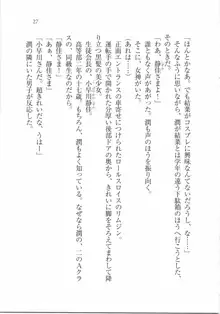 27
「ほんとかなあ。でも結菜がコスプレに興味なんてないだろうし、な
そんなふうに思いながら、潤が結菜とは学年の違う下駄箱のほうへ行こうとした
とき、
「あっ、女神さま」
誰ともなく声があがった。潤も声のほうを振り向く。
正面エントランスの車寄せにつけられたロールスロイスのリムジン。
運転手の手で開かれた分厚い後部ドアの奥から、きれいに脚をそろえてまわして降
り立つ黒髪の美少女。
生徒会長の、小早川静佳。
高等部二年の十七歳。もちろん、潤も知っている。なぜなら潤の、二の二のＡクラ
スの、同級生なのだから。
「静佳さま」
「ああ、静佳さま……」
「小早川さん……、うはー」
潤の隣にいた男子が反応した。